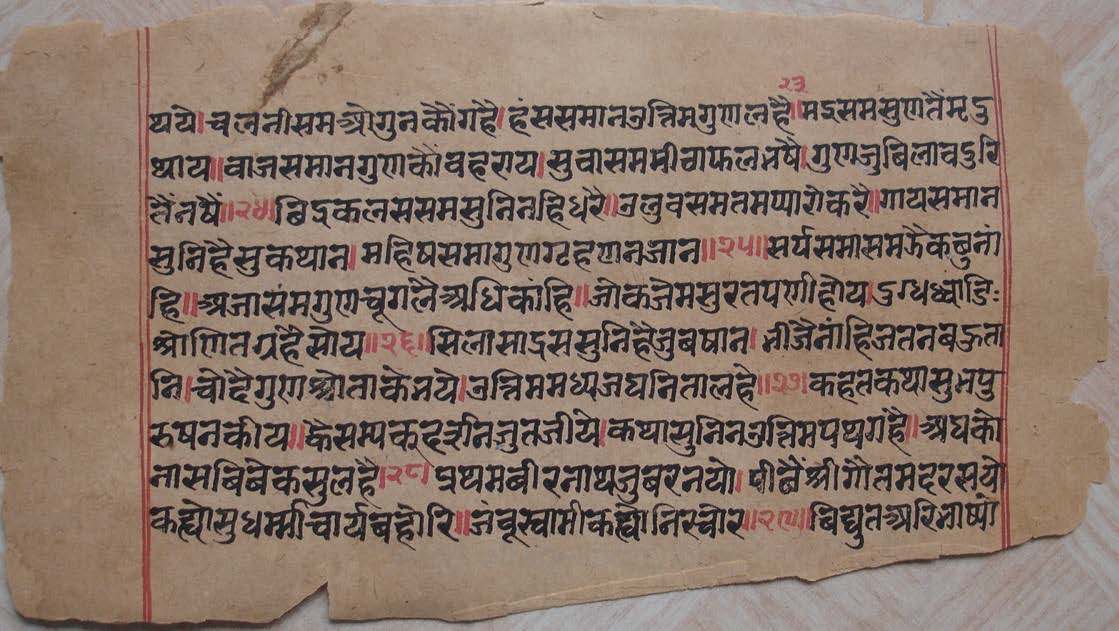 २३
थये। चलनीसमओगुनकौंगहै। हंससमानउत्तिमगुणलहै। मद्दसमसुणतैंमृदु
थाय॥ वाजसमानगुणकौंवहराय। सुवासममीवाफलभषै। गुणजुबिलावदुरि
तैंनषें॥२४॥ छिद्रकलससमसुनिनहिधरै॥ उलुवसमतमप्यारोकरै॥ गायसमान
सुनिहैसुकथान। महिषसमागुणग्टहणनजान॥२५॥ सर्पसमासमऊैकछुनां
हि॥ अजासंमगुणचूगलैअधिकांहि॥ जोकजेमसुरतपणीहोय। दुग्धछांडि
श्रोणितग्रहैसोय॥२६॥ सिलासाद्रससुनिहैजुबषान। भीजैनांहिजतनबहुता
नि। चोदैगुणश्रोताकेभये। उत्तिममध्यजघनितालहे॥२७॥ कहतकथासुभपु
रुषनकीय॥ कैसम्यकद्रढनिजुतजीय। कथासुनिनउत्तिमपथगहै॥ अघको
नासबिबेकसुलहै।२८। प्रथमबीरनाथजुबरनयो। पीछैंश्रीगौतमदरसयो
कह्योसुधर्म्माचार्यबहोरि॥ जंबूस्वामीकह्योनिरचोर॥२९॥ बिद्युतअरिभाष्यो